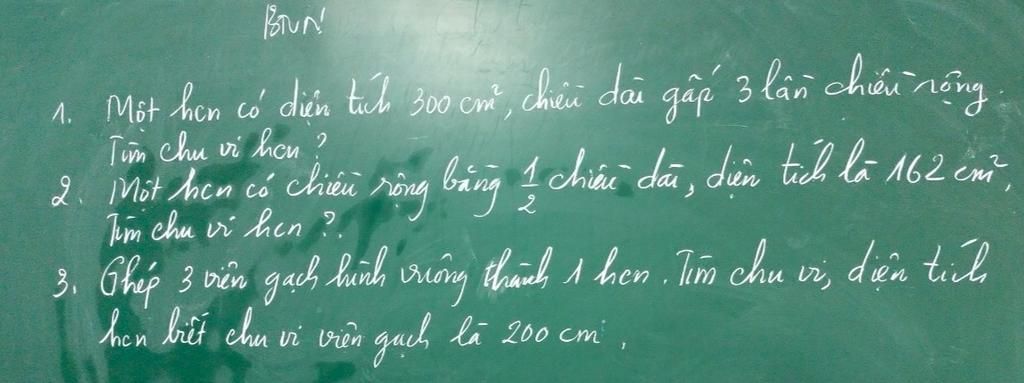 BTVN!
1. Một hcn có diện tích 300 cm², chiều dài gấp 3 lần chiều rộng.
Tìm chu vi hcn?
2. Một hcn có chiều rộng bằng 1/2 chiều dài, diện tích là 162 cm²,
Tìm chu vi hcn?.
3. Ghép 3 viên gạch hình vuông thành 1 hcn. Tìm chu vi, diện tích
hcn biết chu vi viên gạch là 200 cm.